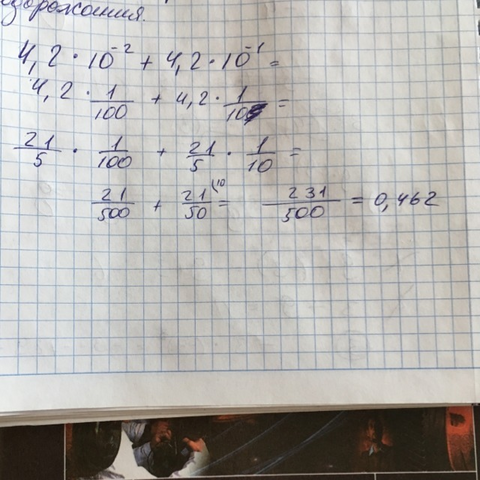 4,2 · 10⁻² + 4,2 · 10⁻¹ =
4,2 · 1/100 + 4,2 · 1/10 =
21/5 · 1/100 + 21/5 · 1/10 =
21/500 + 21/50 (10 = 231/500 = 0,462